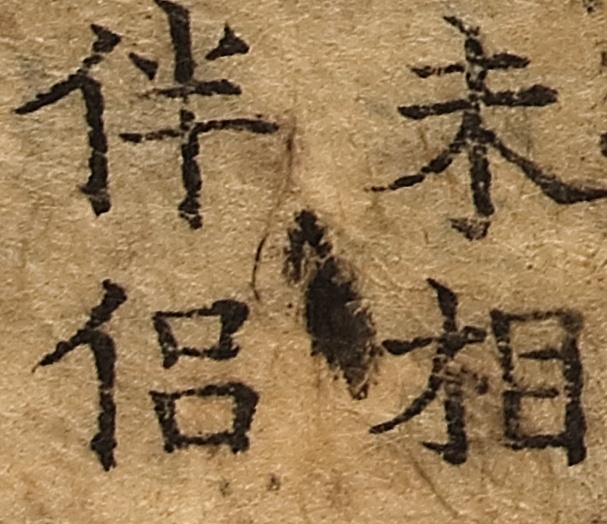 未相
伴侣